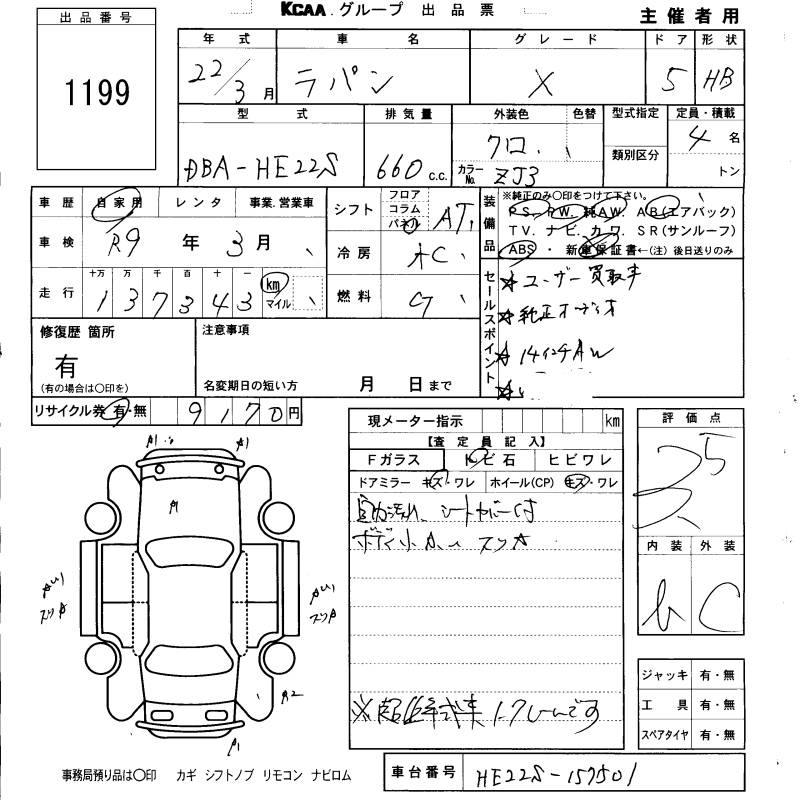 出品番号
1199
KCAA.グループ 出品票
主催者用
年式 車名 グレード ドア 形状
22/3月 ラパン X 5 HB
型式 排気量 外装色 色替 型式指定 定員・積載
DBA-HE22S 660 c.c. クロ 類別区分 4名
カラーNo. ZJ3 トン
車歴 自家用 レンタ 事業.営業車
車検 R9年 3月
走行 十万 万 千 百 十 一
137343 km マイル
シフト フロア コラム パネル AT
冷房 AC
燃料 G
装備品
※純正のみ○印をつけて下さい。
PS. PW. 純AW. AB(エアバック)
TV. ナビ. カワ. SR(サンルーフ)
ABS・新車保証書←(注)後日送りのみ
セールスポイント
ユーザー買取車
純正オーディオ
14インチAW
修復歴 箇所
有
(有の場合は○印を)
注意事項
名変期日の短い方 月 日まで
リサイクル券 有・無 9170円
現メーター指示 km
【査定員記入】
Fガラス トビ石 ヒビワレ
ドアミラー キズ・ワレ ホイール(CP) キズ・ワレ
シートカバー付
ボディ小
ノークレームです
評価点
内装 外装
C
A1 A1
A
スリA
スリA
A2
A1
ジャッキ 有・無
工具 有・無
スペアタイヤ 有・無
事務局預り品は○印 カギ シフトノブ リモコン ナビロム
車台番号 HE22S-157501